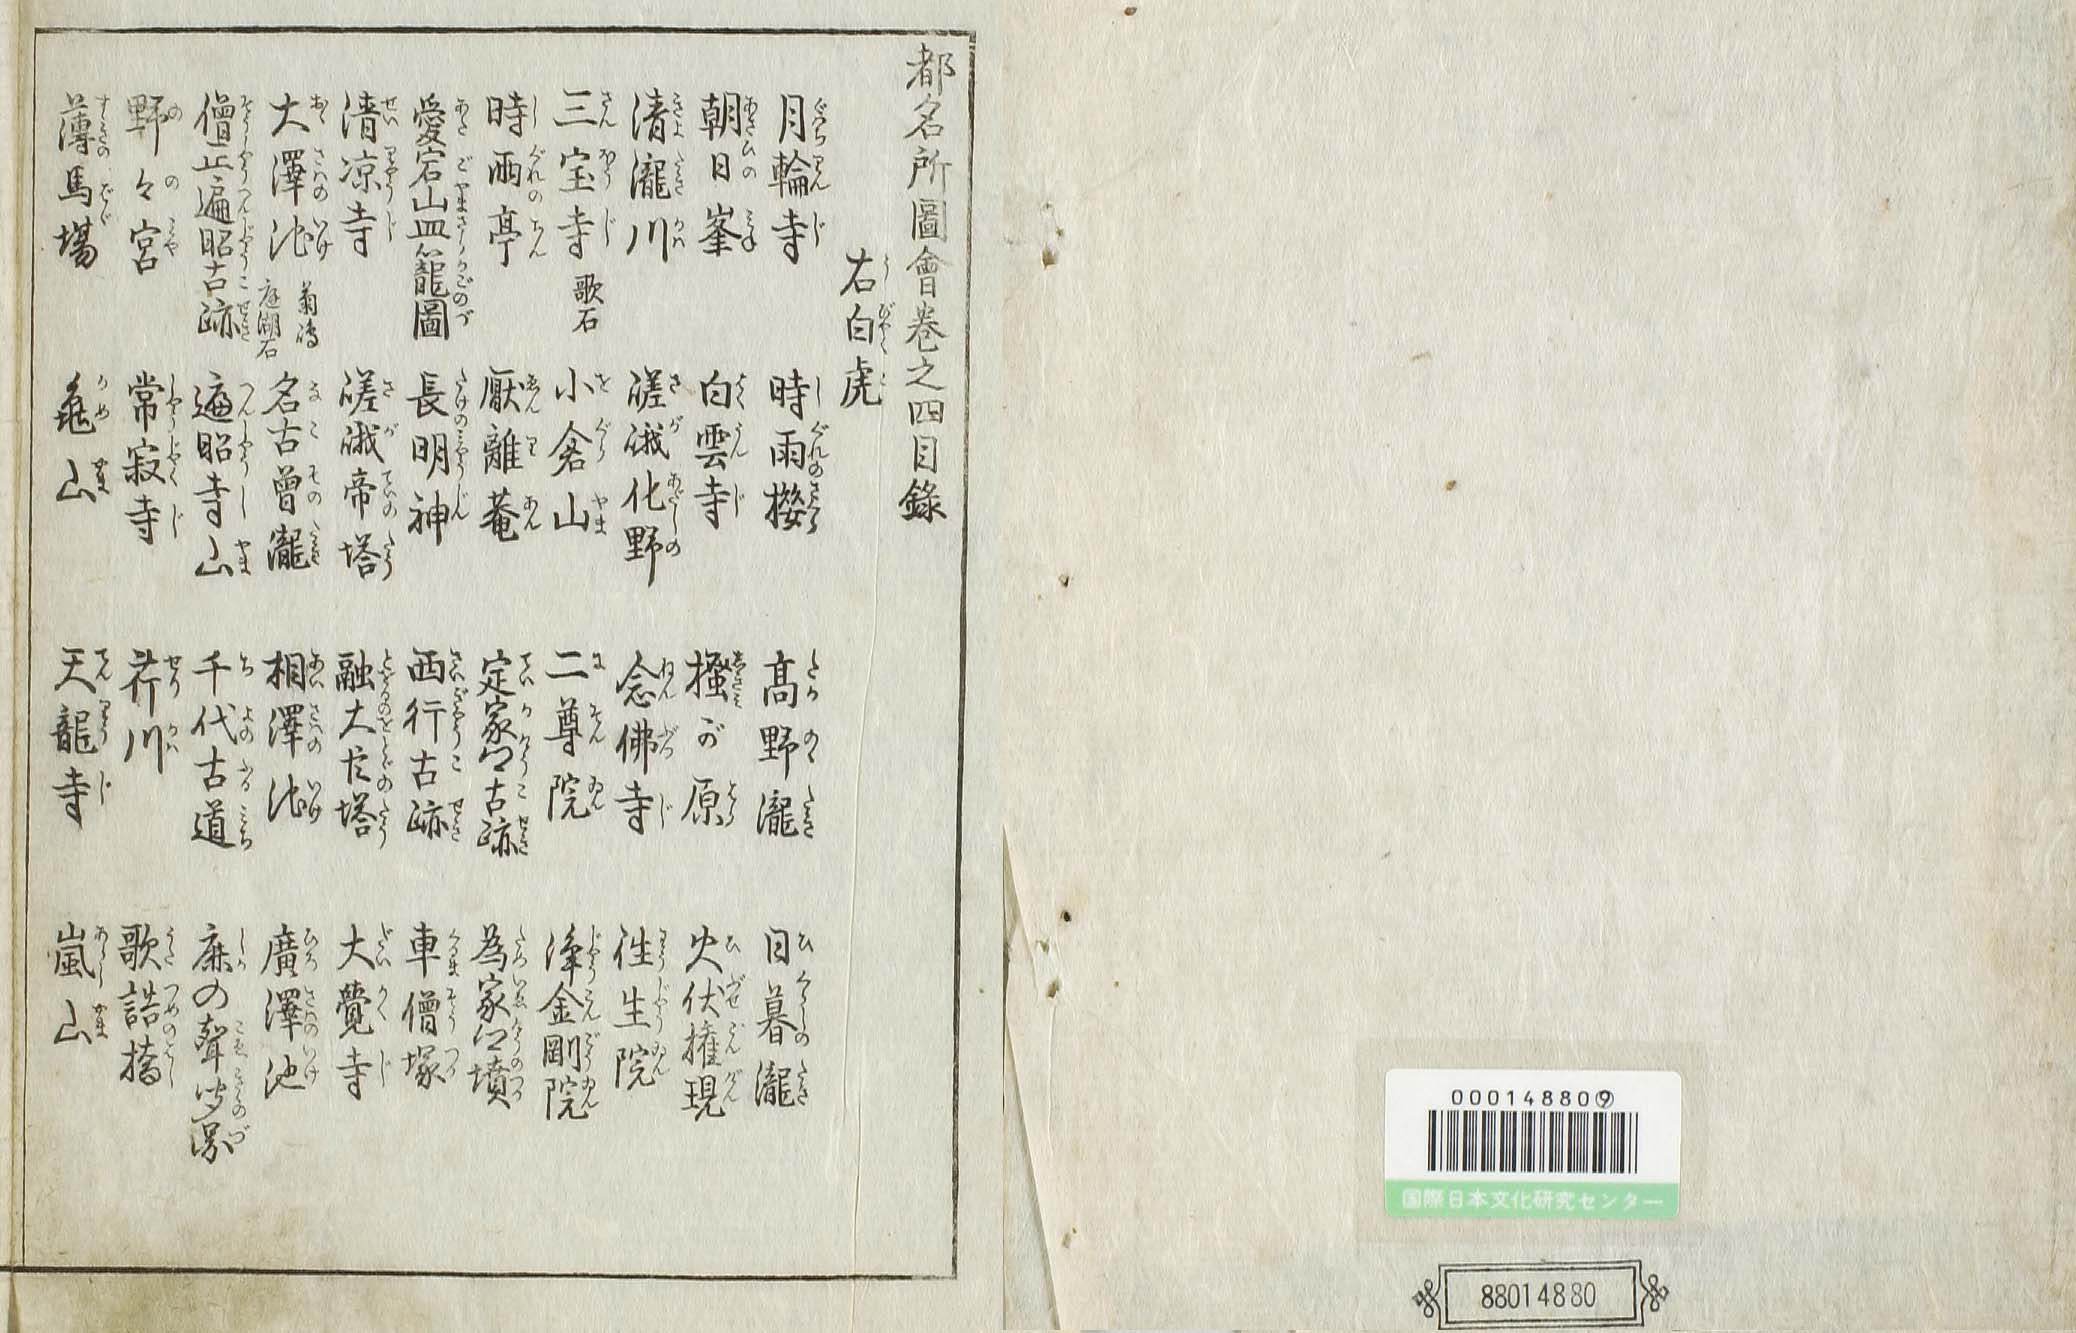 都名所圖會巻之四目錄
右白虎
月輪寺 時雨櫻 高野瀧 日暮瀧
朝日峯 白雲寺 樒が原 火伏権現
清瀧川 嵯峨化野 念佛寺 往生院
三宝寺 歌石 小倉山 二尊院 浄金剛院
時雨亭 厭離菴 定家卿古跡 為家卿墳
愛宕山皿籠圖 長明神 西行古跡 車僧塚
清凉寺 嵯峨帝塔 融大臣塔 大覺寺
大澤池 菊嶋 庭湖石 名古曽瀧 相澤池 廣澤池
僧正遍昭古跡 遍昭寺山 千代古道 鹿の聲聞圖
野々宮 常寂寺 芹川 歌詰橋
薄馬場 亀山 天龍寺 嵐山
000148809
国際日本文化研究センター
88014880